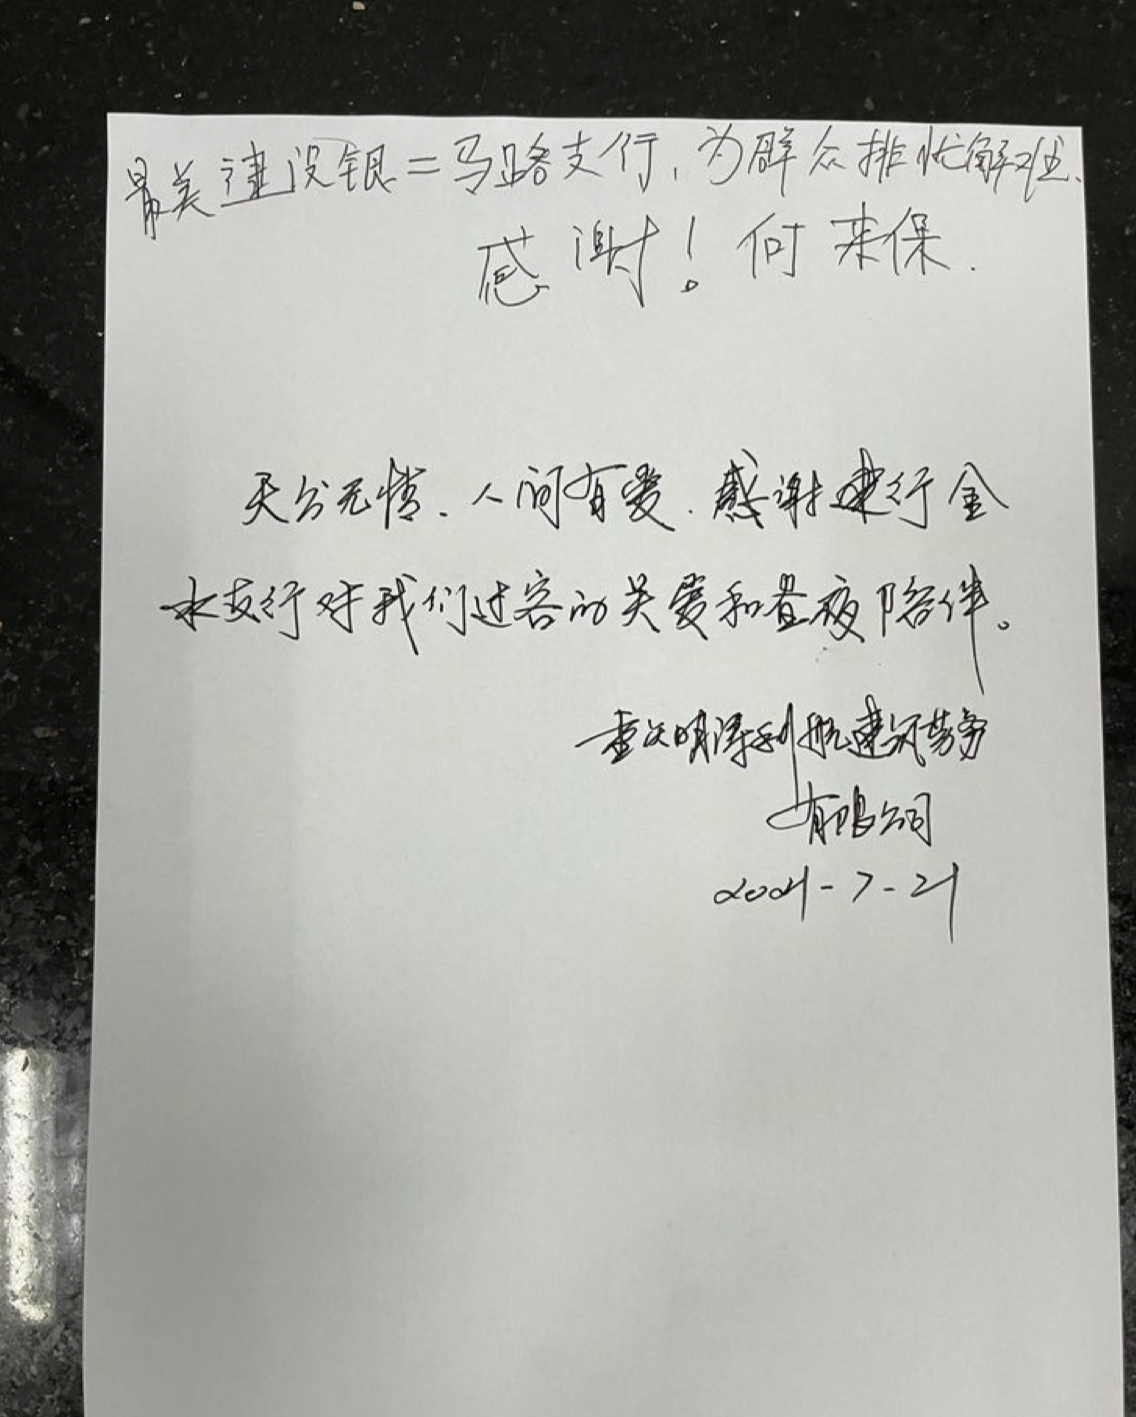 最美建设银二马路支行,为群众排忧解难、
感谢!何来保.
天公无情、人间有爱、感谢建行金
水支行对我们过客的关爱和昼夜陪伴。
利航建筑劳务
有限公司
2021-7-21